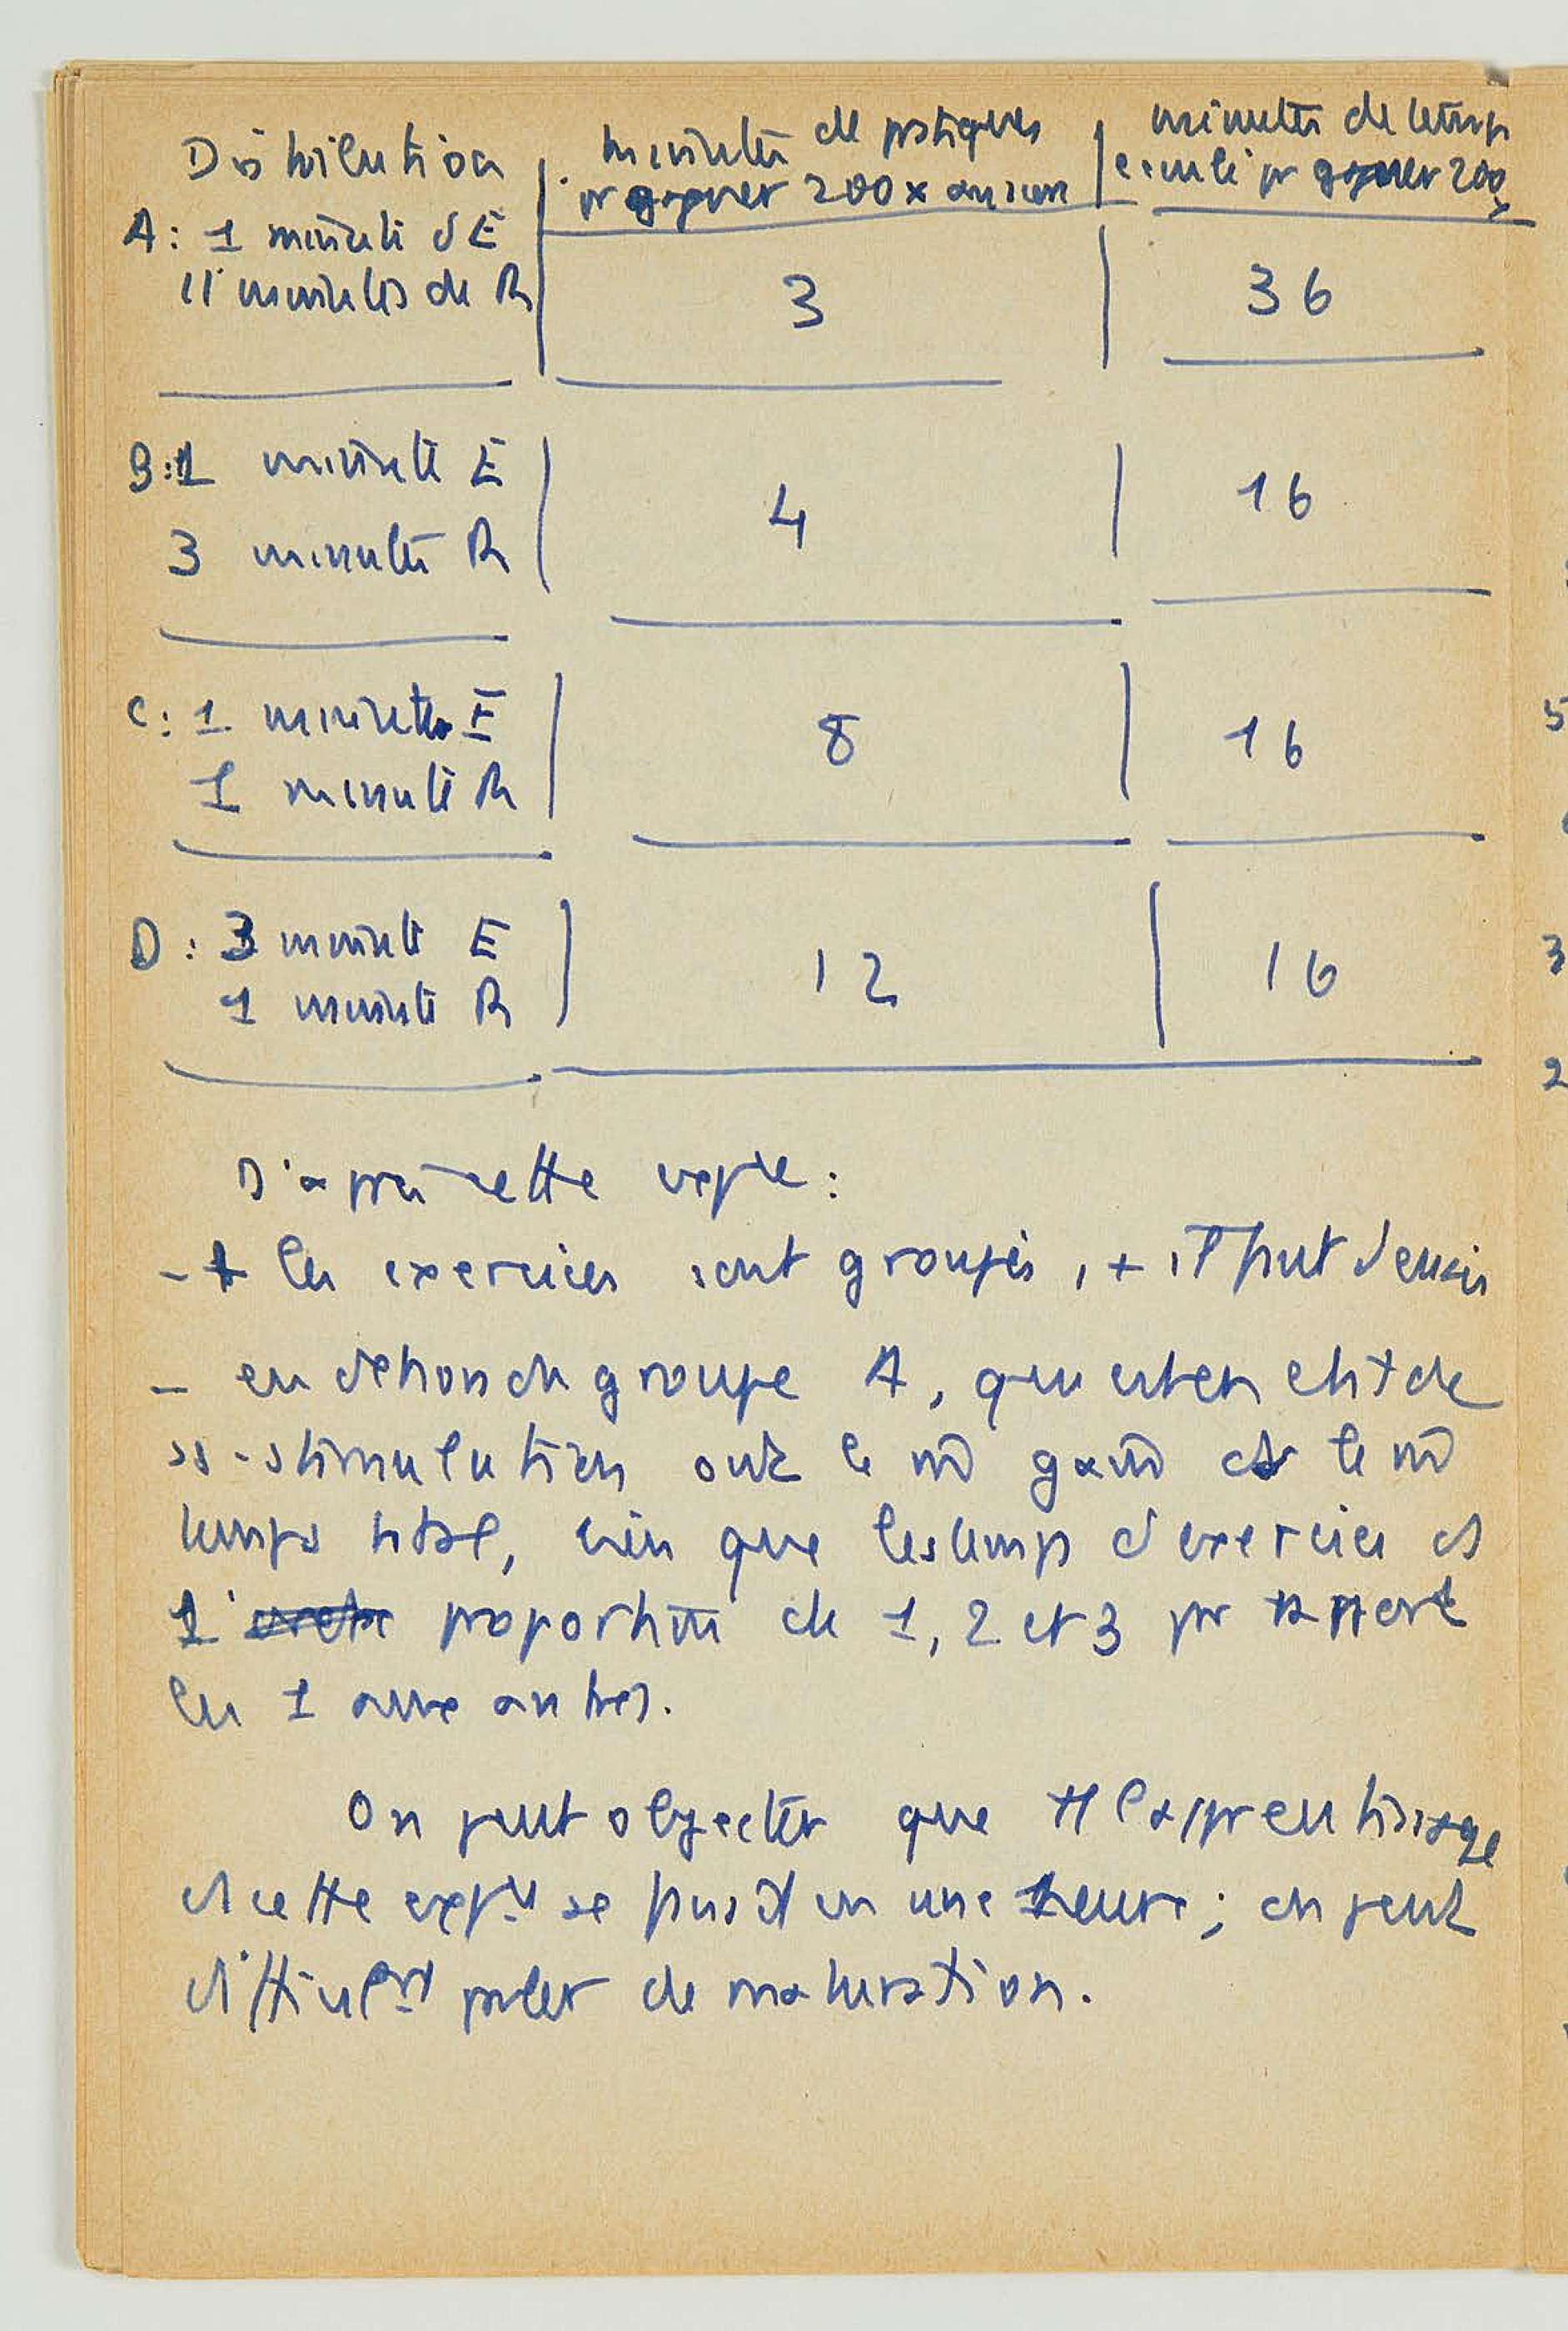 Distribution
minutes de pratiques
minutes de temps
pr gagner 200x au score
pr gagner 200x
A: 1 minute d'E
11 minutes de R
3
36
B: 1 minute E
3 minutes R
4
16
C: 1 minute E
1 minute R
8
16
D: 3 minute E
1 minute R
12
16
D'après cette expre:
- + les exercices sont groupés, + il faut d'essais
- en dehors du groupe A, qui est en état de
ss-stimulation ont le m̂ gain et le m̂
temps total, bien que les temps d'exercice st
proportion de 1, 2 et 3 pr rapport
les 1 aux autres.
On peut objecter que tt l'apprentissage
cette se en une heure; on peut
difficilemt parler de maturation.
5
3
2